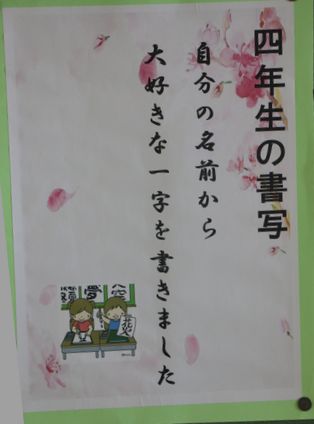 四年生の書写
自分の名前から
大好きな一字を書きました